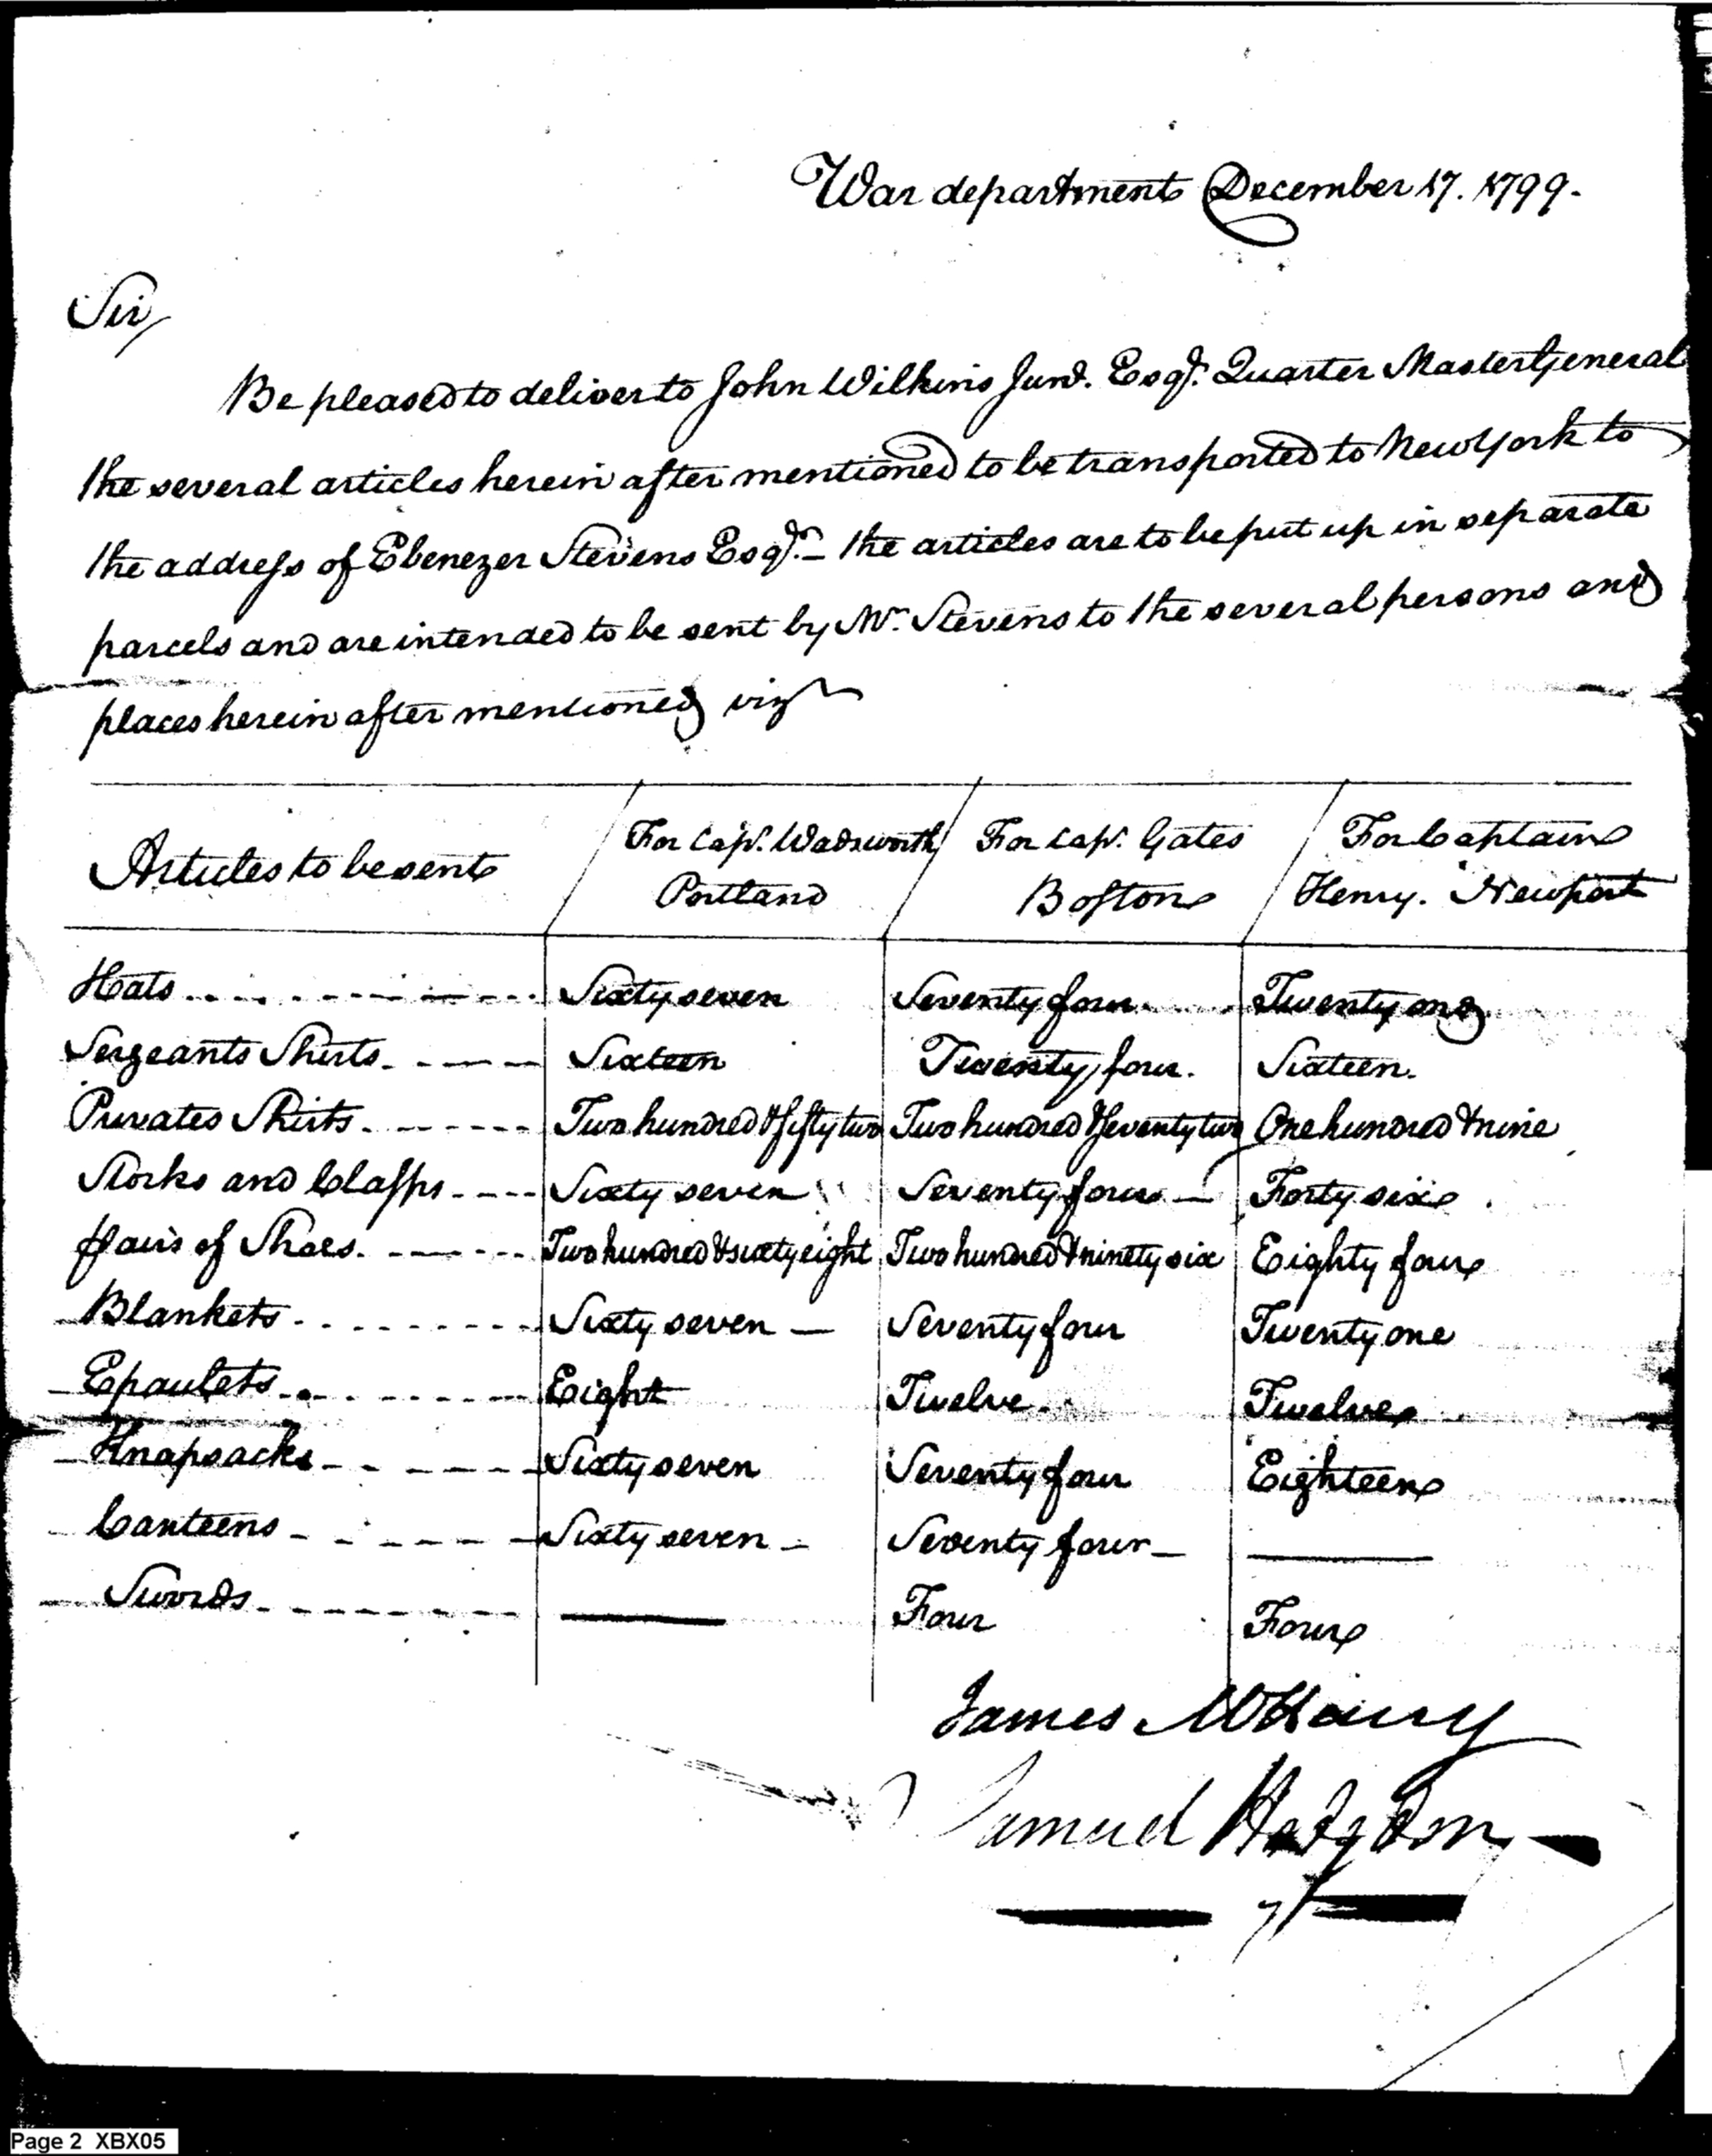 War department December 17. 1799.
Sir,
Be pleased to deliver to John Wilkins Junr. Esqr. Quarter Master General
the several articles herein after mentioned to be transported to New York to
the address of Ebenezer Stevens Esqr. – the articles are to be put up in separate
parcels and are intended to be sent by Mr. Stevens to the several persons and
places herein after mentioned viz
Articles to be sent | For Capt. Wadsworth Portland | For Capt. Gates Boston | For Captain Henry. Newport
Hats | Sixty seven | Seventy four | Twenty one
Sergeants Shirts | Sixteen | Twenty four. | Sixteen.
Privates Shirts | Two hundred & fifty two | Two hundred & seventy two | One hundred & nine
Stocks and Clasps | Sixty seven | Seventy four — | Forty six
pairs of Shoes | Two hundred & sixty eight | Two hundred & ninety six | Eighty four
Blankets | Sixty seven — | Seventy four | Twenty one
Epaulets | Eight | Twelve | Twelve
Knapsacks | Sixty seven | Seventy four | Eighteen
Canteens | Sixty seven – | Seventy four – | —
Swords | — | Four | Four
James McHenry
Samuel Hodgdon
Page 2 XBX05